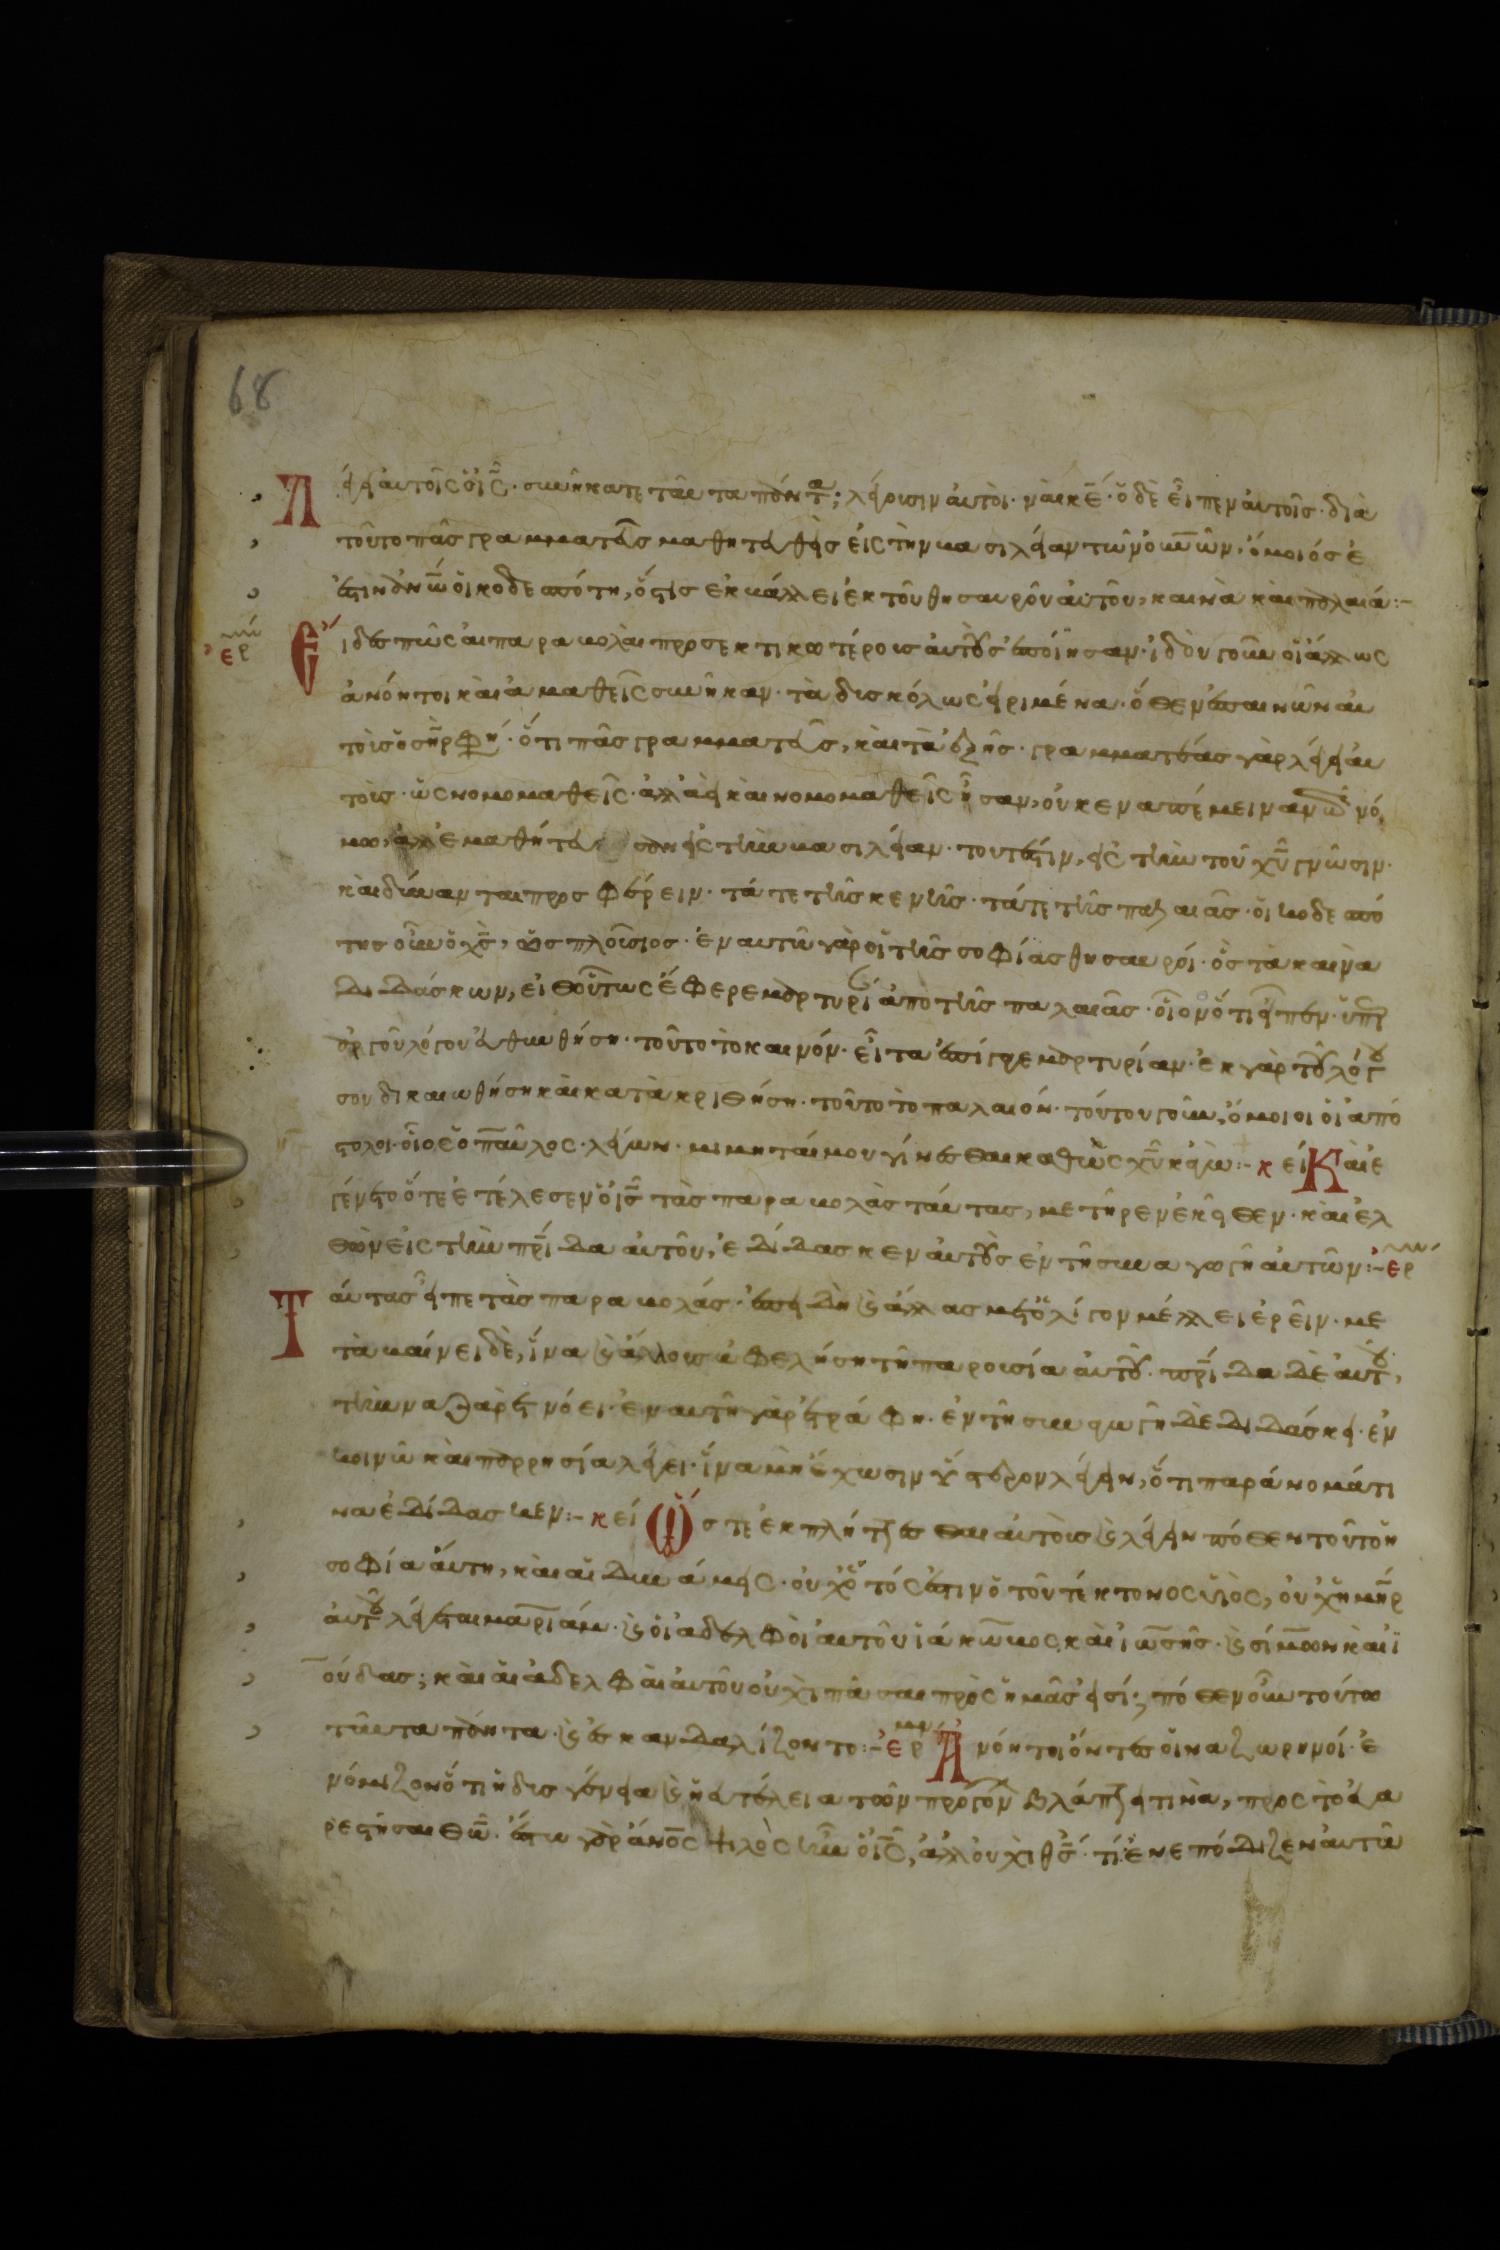 68
Λέγει αὐτοῖς ὁ ι̅ς̅· συνήκατε ταῦτα πάντα; λέγουσιν αὐτῶ· ναὶ κ̅ε̅· ὁ δὲ εἶπεν αὐτοῖς· διὰ
τοῦτο πᾶς γραμματεὺς μαθητευθεὶς εἰς τὴν βασιλείαν τῶν ο̅υ̅ν̅ῶν, ὅμοιός ἐ
ἐστιν α̅ν̅ω̅ οἰκοδεσπότη, ὅστις ἐκβάλλει ἐκ τοῦ θησαυροῦ αὐτοῦ, καινὰ καὶ παλαιά:-
ερμη Εἶδες πῶς αἱ παραβολαὶ προσεκτικωτέρους αὐτοὺς ἐποίησαν· ἰδοὺ γοῦν οἱ ἄλλως
ἀνόητοι καὶ ἀμαθεῖς συνῆκαν· τὰ δισκόλως εἰριμένα· ὅθεν ἐπαινῶν αὐ
τοὺς ὁ σ̅η̅ρ̅ φησί· ὅτι πᾶς γραμματεὺς, καὶ τὰ ἑξῆς· γραμματέας γὰρ λέγει αὐ
τοὺς· ὡς νομομαθεῖς· ἀλλὰ εἰ καὶ νομομαθεῖς ἦσαν, οὐκ ἐναπέμειναν τῶ νό
μω, ἀλλ' ἐμαθητεύθησαν εἰς τὴν βασιλείαν· τουτέστιν, εἰς τὴν τοῦ χ̅υ̅ γνῶσιν·
καὶ δύνανται προσφέρειν· τά τε τῆς κενῆς· τά τε τῆς παλαιᾶς· οἰκοδεσπό
της οὖν ὁ χ̅ς̅, ὡς πλούσιος· ἐν αυτῶ γὰρ οἱ τῆς σοφίας θησαυροί· ὃς τὰ καινὰ
διδάσκων, εἶθ' οὕτως ἔφερε μαρτυρί ἀπὸ τῆς παλαιᾶς· οἷον ὅτι εἶπεν· ὑπὲρ
ἀργοῦ λόγου εὐθυνθήση· τοῦτο τὸ καινόν· εἶτα ἐπήγαγε μαρτυρίαν· ἐκ γὰρ τοῦ λόγου
σου δικαιωθήση καὶ κατακριθήση· τοῦτο τὸ παλαιόν· τούτου γοῦν, ὅμοιοι οἱ ἀπό
στολοι· οἷος ὁ παῦλος· λέγων· μιμηταί μου γίνεσθαι καθὼς χ̅υ̅ κἀγώ:- κεί Καὶ ἐ
γένετο ὅτε ἐτέλεσεν ὁ ι̅ς̅ τὰς παραβολὰς ταύτας, μετῆρεν ἐκεῖθεν· καὶ ἐλ
θὼν εἰς τὴν π̅ρ̅ίδα αὐτοῦ, ἐδίδασκεν αὐτοὺς ἐν τῆ συναγωγῆ αὐτῶν:- ερμη
Ταύτας εἶπε τὰς παραβολάς· ἐπειδὴ καὶ ἄλλας μετ' ὀλίγον μέλλει ἐρεῖν· με
ταβαίνει δὲ, ἵνα καὶ ἄλλους ὠφελήση τῆ παρουσία αὐτοῦ· π̅ρ̅ίδα δὲ αὐτοῦ,
τὴν ναζαρὲτ νόει· ἐν αυτῆ γὰρ ἐτράφη· ἐν τῆ συναγωγῆ δὲ διδάσκει· ἐν
κοινῶ καὶ παρρησία λέγει· ἵνα μὴ ἔχωσιν ὕστερον λέγειν, ὅτι παράνομά τι
να ἐδίδασκεν:- κεί Ὥστε ἐκπλήττεσθαι αὐτοὺς καὶ λέγειν πόθεν τοῦτο ἡ
σοφία αὕτη, καὶ αἱ δυνάμεις· οὐχ οὗτός ἐστιν ὁ τοῦ τέκτονος υἱὸς, οὐχὶ ἡ μ̅η̅ρ̅
αὐτοῦ λέγεται μαριάμ· καὶ οἱ αδελφοὶ αυτοῦ ἰάκωβος καὶ ἰωσῆς· καὶ σίμων καὶ ἰ
ούδας; καὶ αἱ ἀδελφαὶ αὐτοῦ οὐχὶ πᾶσαι πρὸς ἡμᾶς εἰσί; πόθεν οὖν τούτω
ταῦτα πάντα· καὶ ἐσκανδαλίζοντο:- ερμη Ἀνόητοι ὄντες οἱ ναζωρηνοί· ἐ
νόμιζον ὅτι ἡ δισγένεια καὶ ἡ ἀτέλεια τῶν προγόνων βλάπτει τινὰ, πρὸς τὸ εὐα
ρεστῆσαι θ̅ω̅· ἔστω γὰρ ἄν̅ο̅ς̅ ψιλὸς ἦν ὁ ι̅ς̅, ἀλλ' οὐχὶ θ̅ς̅· τί ἐνεπόδιζεν αὐτῶ